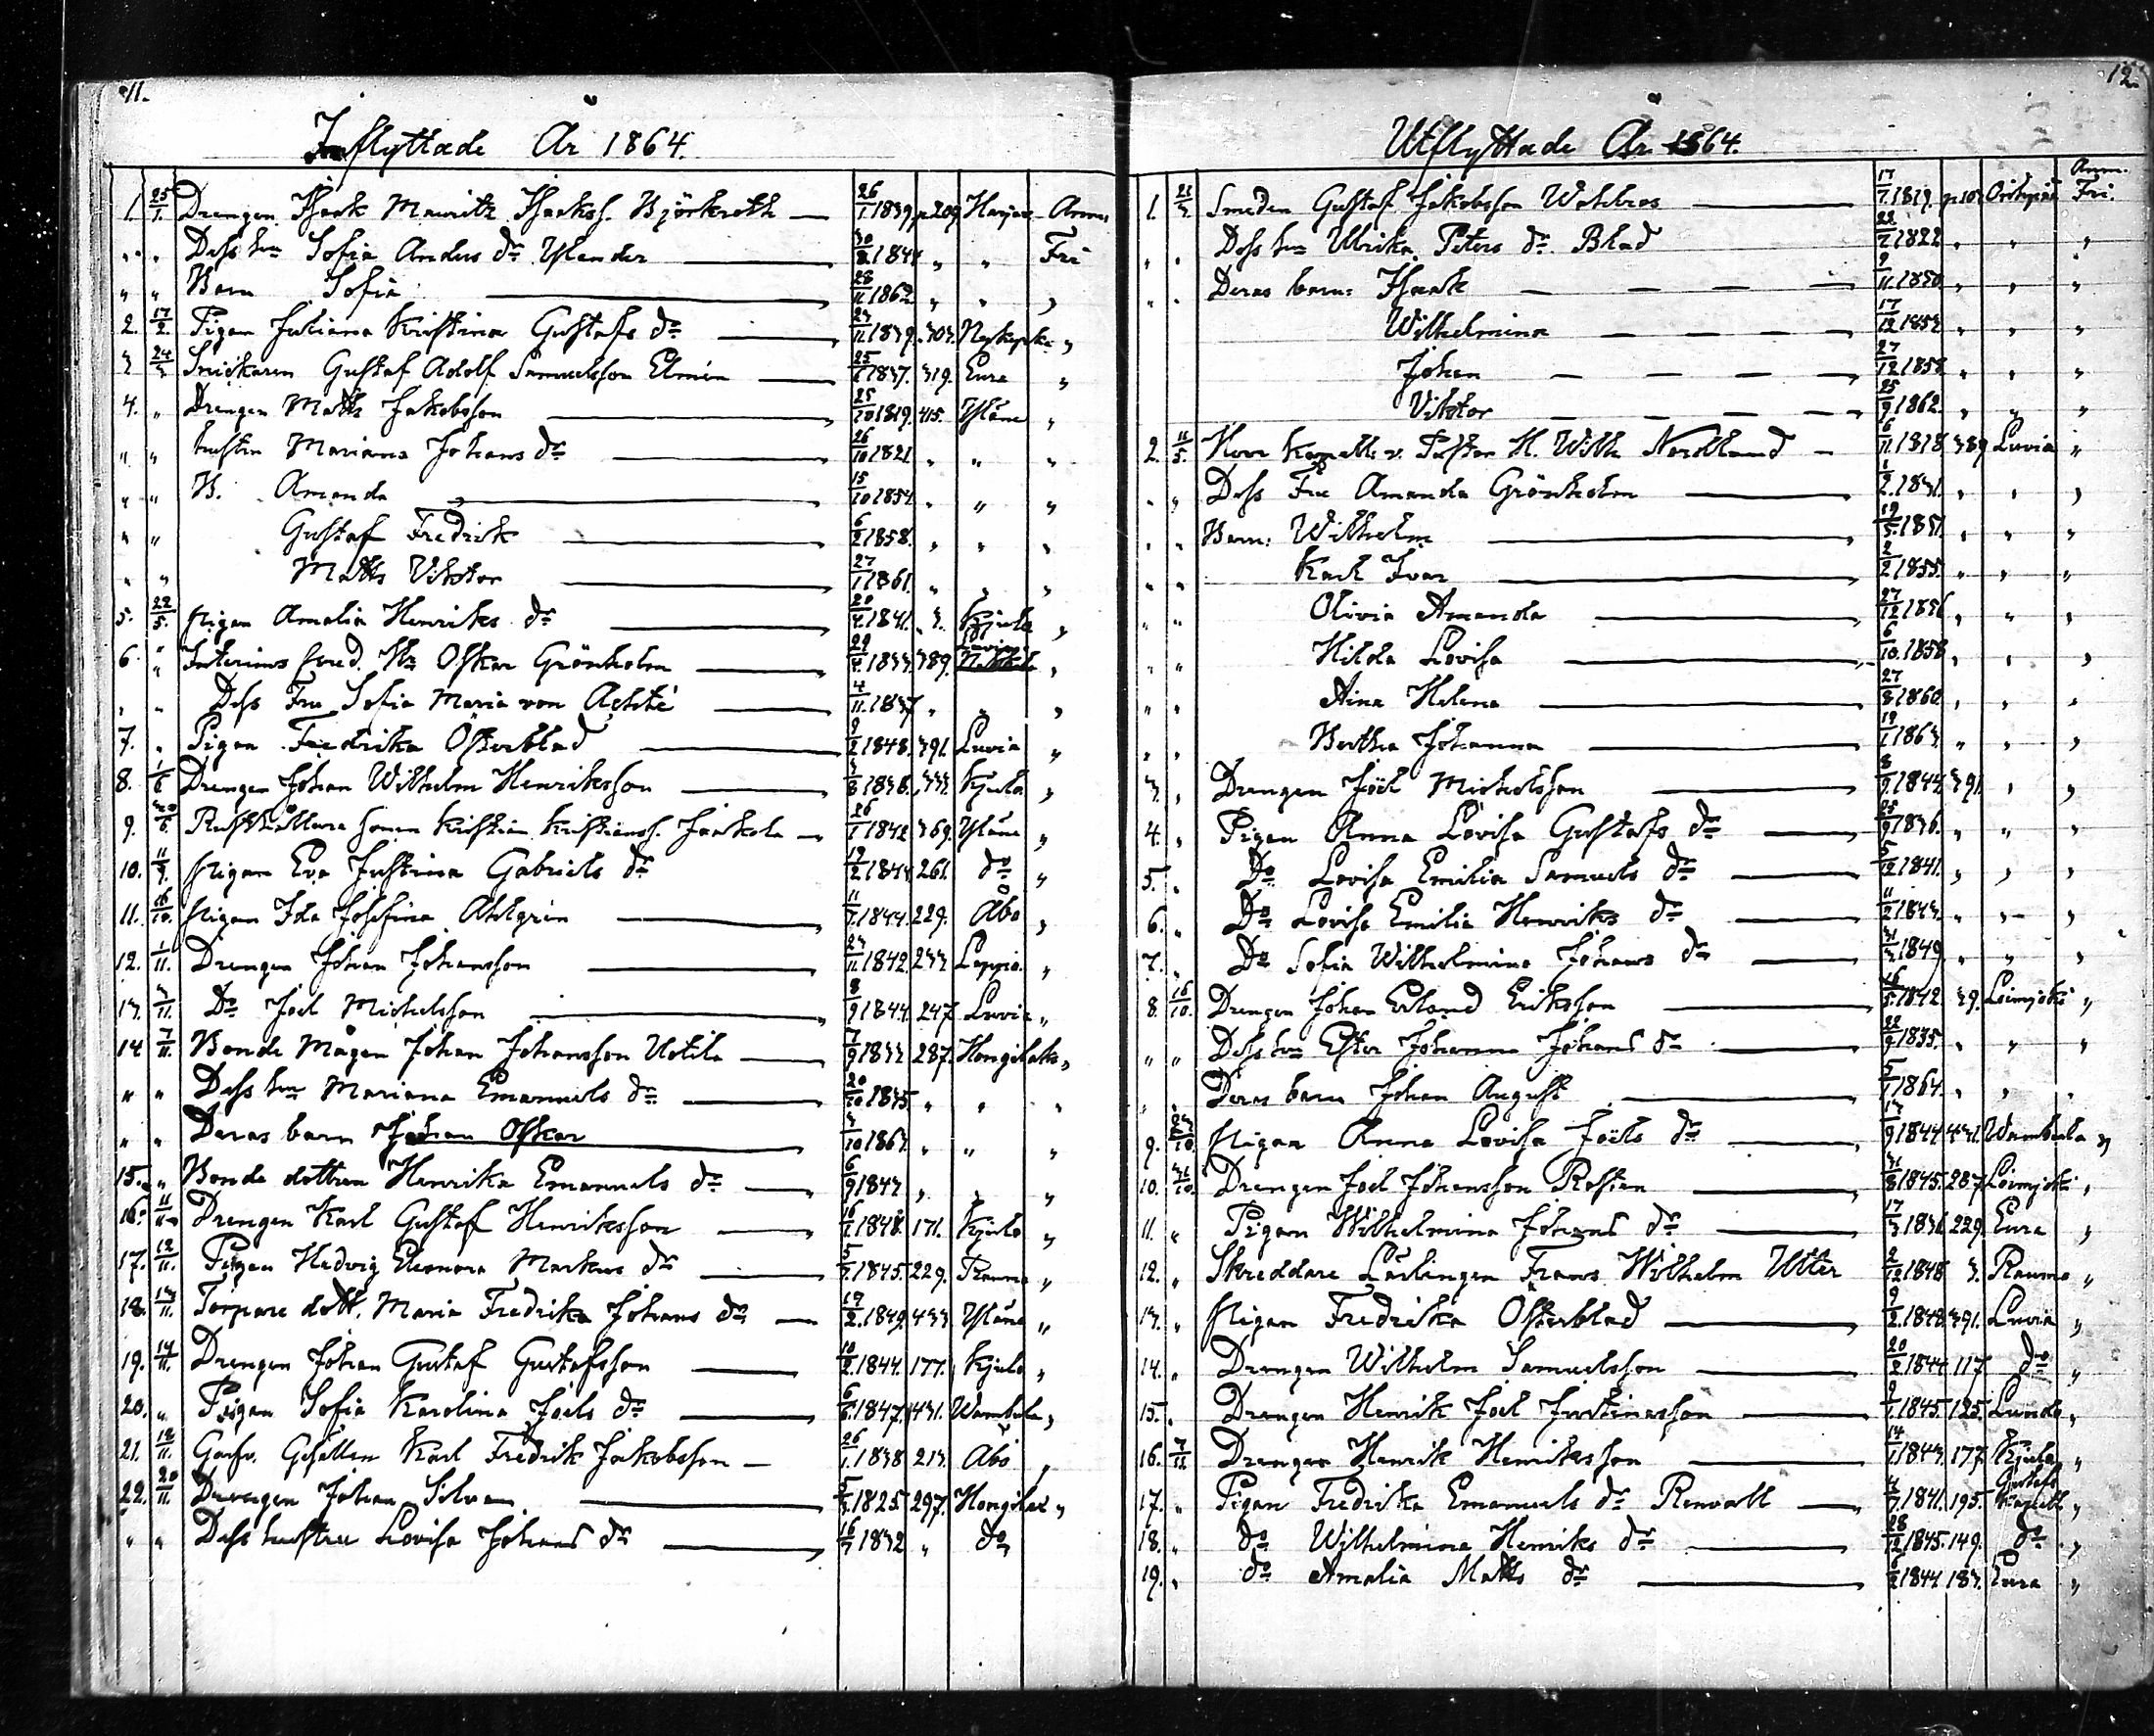 11.
Inflyttade År 1864.
1. 25/1. Drengen Isaak Mauritz Isakss. Björkroth — 26/1 1839 p 209 Harjav. Anm.
" " Dess hu Sofia Anders dr Ylander — 30/8 1844 " " Fri
" " Barn Sofia — 28/11 1862 " " "
2. 17/2. Pigan Juliana Kristina Gustafs dr — 1839. 303. Nykyrko "
3 24/3 Snickaren Gustaf Adolf Samuelsson Elmén — 25/1 1837. 319. Eura "
4. " Drengen Matts Jakobsson — 25/10 1819. 415. Yläne "
" " hustrn Mariana Johans dr — 26/10 1821 " " "
" " B. Amanda — 15/10 1854 " " "
" " Gustaf Fredrik — 6/2 1858. " " "
" " Matts Viktor — 27/1 1861. " " "
5. 22/5. Pigan Amalia Henriks dr — 20/4 1841. 3. Kjula "
6. " Interims Oskar Grönholm — 29/4 1833 389. Luvia "
" " Dess Fru Sofia Maria von Achté — 4/11 1837 " " "
7. " Pigan Fredrika Österblad — 9/2 1848. 391. Luvia "
8. 1/6 Drengen Johan Wilhelm Henriksson — 3/8 1838. 333. Kjula "
9. 30/6. Rusthållare sonen Kristian Kristianss. Jaakola — 26/1 1842 369. Yläne "
10. 11/9. Pigan Eva Justina Gabriels dr 19/2 1844 261. do "
11. 16/10. Pigan Ida Josefina Ahlgrén — 11/7. 1844. 229. Åbo "
12. 1/11. Drengen Johan Johansson — 23/11 1842. 233 Lappo. "
13. 3/11. Do Joel Michelsson — 8/9 1844. 247 Luvia "
14 7/11. Bonde Mågen Johan Johansson Uotila — 7/9 1833 287. Hongilaks "
" " Dess hu Mariana Emanuels dr — 20/10 1835 " " "
" " Deras barn Johan Oskar — 3/10 1863. " " "
15. " Bonde dottren Henrika Emanuels dr — 6/9 1843 " " "
16. 11/11 Drengen Karl Gustaf Henriksson — 16/1 1848. 171. Kjulo "
17. 12/11. Pigan Hedvig Eleonora Markus dr — 5/7. 1845. 229. Raumo "
18. 13/11. Torpare dott. Maria Fredrika Johans dr — 19/2. 1849. 433 Yläne "
19. 14/11. Drengen Johan Gustaf Gustafsson — 10/2. 1844. 177. Kjulo "
20. " Pigan Sofia Karolina Joels dr — 6/6. 1847. 431. Wambula "
21. 19/11. Garfv. Gesellen Karl Fredrik Jakobsson — 26/1. 1838 213. Åbo "
22. 20/11. Drengen Johan Silvan — 5/3. 1825 297. Hongilax "
" " Dess hustru Lovisa Johans dr — 16/7 1832 " do
12.
Utflyttade År 1864.
Anm.
1. 21/3 Smeden Gustaf Jakobsson Wahlroos — 17/7. 1819. p. 103 Fri.
" " Dess hu Ulrika Peters dr Blad 1822 " " "
" " Deras barn: Isaak — 9/11. 1850 " " "
Wilhelmina — 17/12 1853 " " "
Johan — 27/12 1858 " " "
Viktor — 25/9 1862. " " "
2. 11/5. Herr Kapell. v. Pastor H. Wilh Nordlund — 6/11. 1818 389 Luvia "
" " Dess Fru Amanda Grönholm — 1/2. 1831. " " "
" " Barn: Wilhelm — 19/5. 1851. " " "
" " Karl Ivar — 2/2 1855. " " "
" " Olivia Amanda — 27/12 1856 " " "
" " Hilda Lovisa — 6/10. 1858 " " "
" " Aina Helena — 27/8 1860. " " "
" " Bertha Johanna — 19/1 1863. " " "
3. " Drengen Joël Michelsson — 8/9. 1844. 391. " "
4. " Pigan Anna Lovisa Gustafs dr — 25/9 1836. " " "
5. " Do Lovisa Emilia Samuels dr — 5/12 1841. " " "
6. " Do Lovisa Emilia Henriks dr — 11/2 1843. " " "
7. " Do Sofia Wilhelmina Johans dr — 31/3 1849 " " "
8. 16/10. Drengen Johan Erland Eriksson — 16/5. 1842. 39. Loimijoki "
" " Dess hu Ester Johanna Johans dr — 22/9 1835. " " "
" Deras barn Johan August — 5/1 1864. " " "
9. 23/10. Pigan Anna Lovisa Joëls dr — 13/9 1844 431. Wambula "
10. 31/10. Drengen Joel Johansson Rostén — 31/8 1845. 287 Loimijoki "
11. " Pigan Wilhelmina Johans dr — 17/3 1836. 229. Eura "
12. " Skreddare Lärlingen Frans Wilhelm Utter 2/12 1848 3. Raumo "
13. " Pigan Fredrika Österblad — 9/2. 1848. 391. Luvia "
14. " Drengen Wilhelm Samuelsson — 20/2 1844 117 do "
15. " Drengen Henrik Joel Justinusson — 9/7. 1845. 125. Lundo "
16. 7/11 Drengen Henrik Henriksson — 14/1 1843. 177 Kjulo "
17. " Pigan Fredrika Emanuels dr Renvall — 4/7. 1841. 195. Gustafs Kapell "
18. " do Wilhelmina Henriks dr — 28/12 1845. 149. do "
19. " do Amalia Matts dr — 6/2 1844 183. Eura "